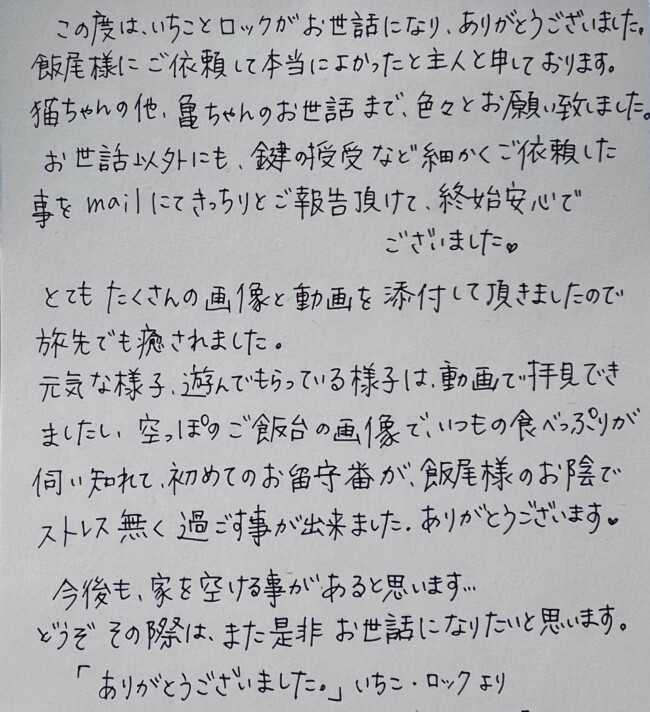 この度は、いちことロックがお世話になり、ありがとうございました。
飯尾様にご依頼して本当によかったと主人と申しております。
猫ちゃんの他、亀ちゃんのお世話まで、色々とお願い致しました。
お世話以外にも、鍵の授受など細かくご依頼した
事をmailにてきっちりとご報告頂けて、終始安心で
ございました♥
とてもたくさんの画像と動画を添付して頂きましたので
旅先でも癒されました。
元気な様子、遊んでもらっている様子は、動画で拝見でき
ましたし、空っぽのご飯台の画像で、いつもの食べっぷりが
伺い知れて、初めてのお留守番が、飯尾様のお陰で
ストレス無く過ごす事が出来ました。ありがとうございます♥
今後も、家を空ける事があると思います…
どうぞその際は、また是非お世話になりたいと思います。
「ありがとうございました。」いちこ・ロックより